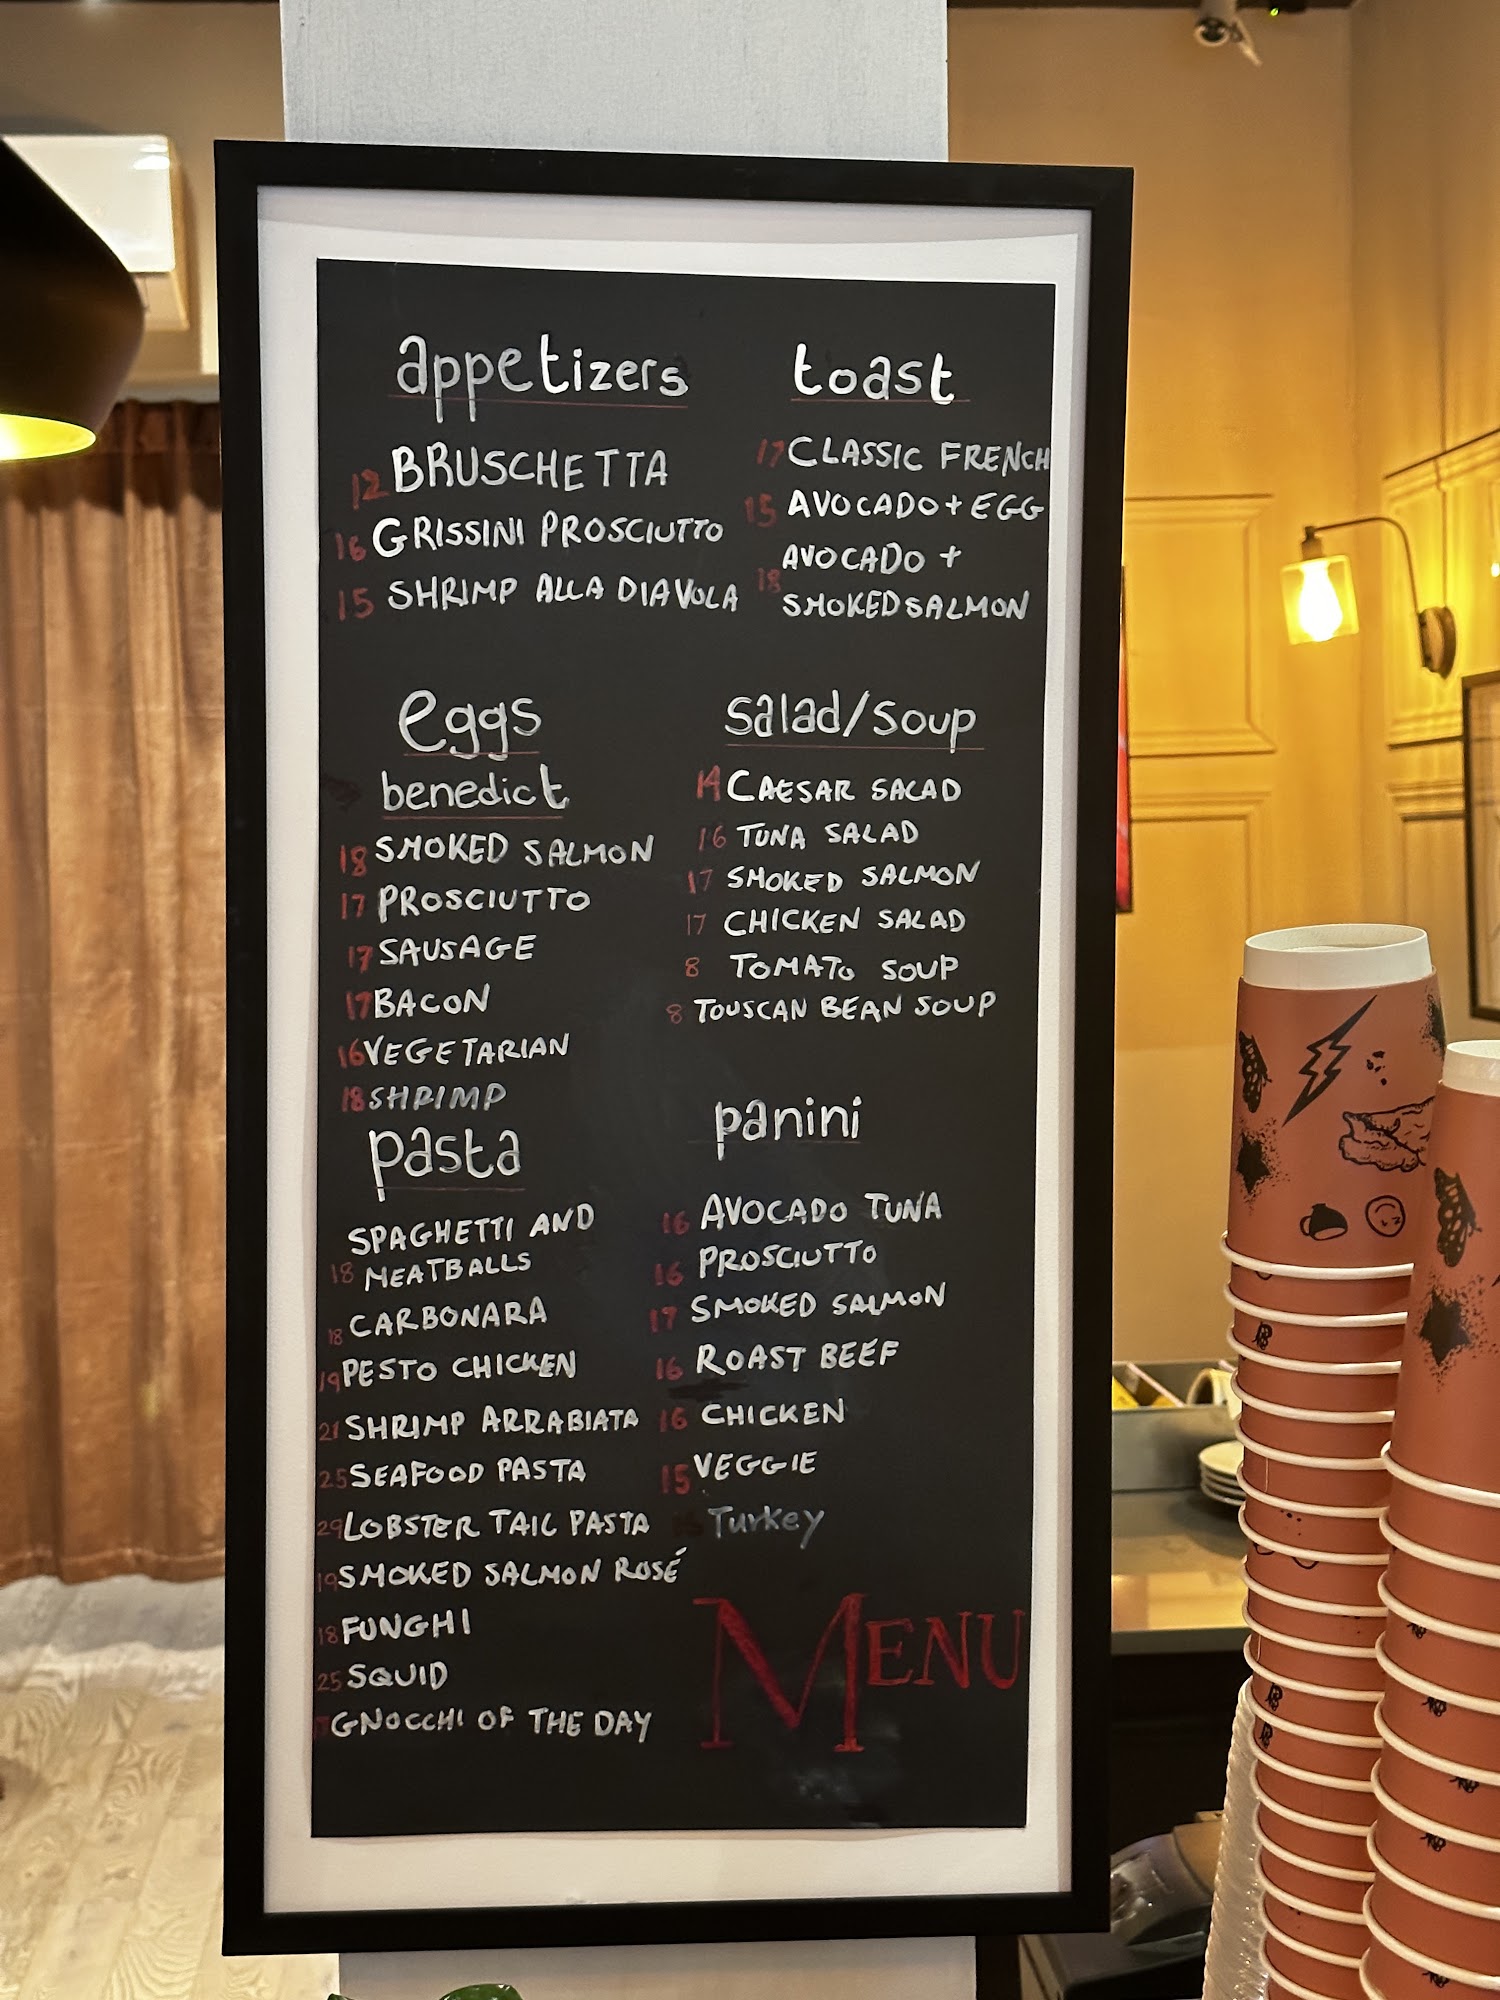 appetizers
12 BRUSCHETTA
16 GRISSINI PROSCIUTTO
15 SHRIMP ALLA DIAVOLA
toast
17 CLASSIC FRENCH
15 AVOCADO + EGG
AVOCADO +
18 SMOKED SALMON
eggs
benedict
18 SMOKED SALMON
17 PROSCIUTTO
17 SAUSAGE
17 BACON
16 VEGETARIAN
18 SHRIMP
salad/soup
14 CAESAR SALAD
16 TUNA SALAD
17 SMOKED SALMON
17 CHICKEN SALAD
8 TOMATO SOUP
8 TOUSCAN BEAN SOUP
pasta
SPAGHETTI AND
18 MEATBALLS
18 CARBONARA
19 PESTO CHICKEN
21 SHRIMP ARRABIATA
25 SEAFOOD PASTA
29 LOBSTER TAIL PASTA
19 SMOKED SALMON ROSÉ
18 FUNGHI
25 SQUID
GNOCCHI OF THE DAY
panini
16 AVOCADO TUNA
16 PROSCIUTTO
17 SMOKED SALMON
16 ROAST BEEF
16 CHICKEN
15 VEGGIE
Turkey
MENU